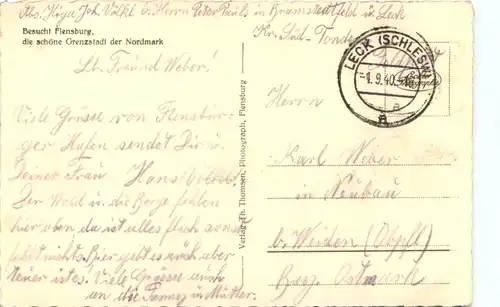 Abs. Joh. Völkl b. Herrn Peter Pauls in Bramstedtfeld ü. Leck
Kr. Süd-Tondern
Besucht Flensburg,
die schöne Grenzstadt der Nordmark
Lb. Freund Weber!
Viele Grüsse von Flensbur-
ger Hafen sendet Dir u.
Deiner Frau Hans
Der Wald u. die Berge fehlen
hier oben da ist alles flach sonst
fehlt nichts. Hier geht es auch aber
ist es! Viele Grüsse auch
an die u. Mutter.
Verlag: Th. Thomsen, Photograph, Flensburg
LECK (SCHLESW)
-1.9.40.
a
Herrn
Karl Weber
in Neubau
b. Weiden (Obpfl)
Bay. Ostmark